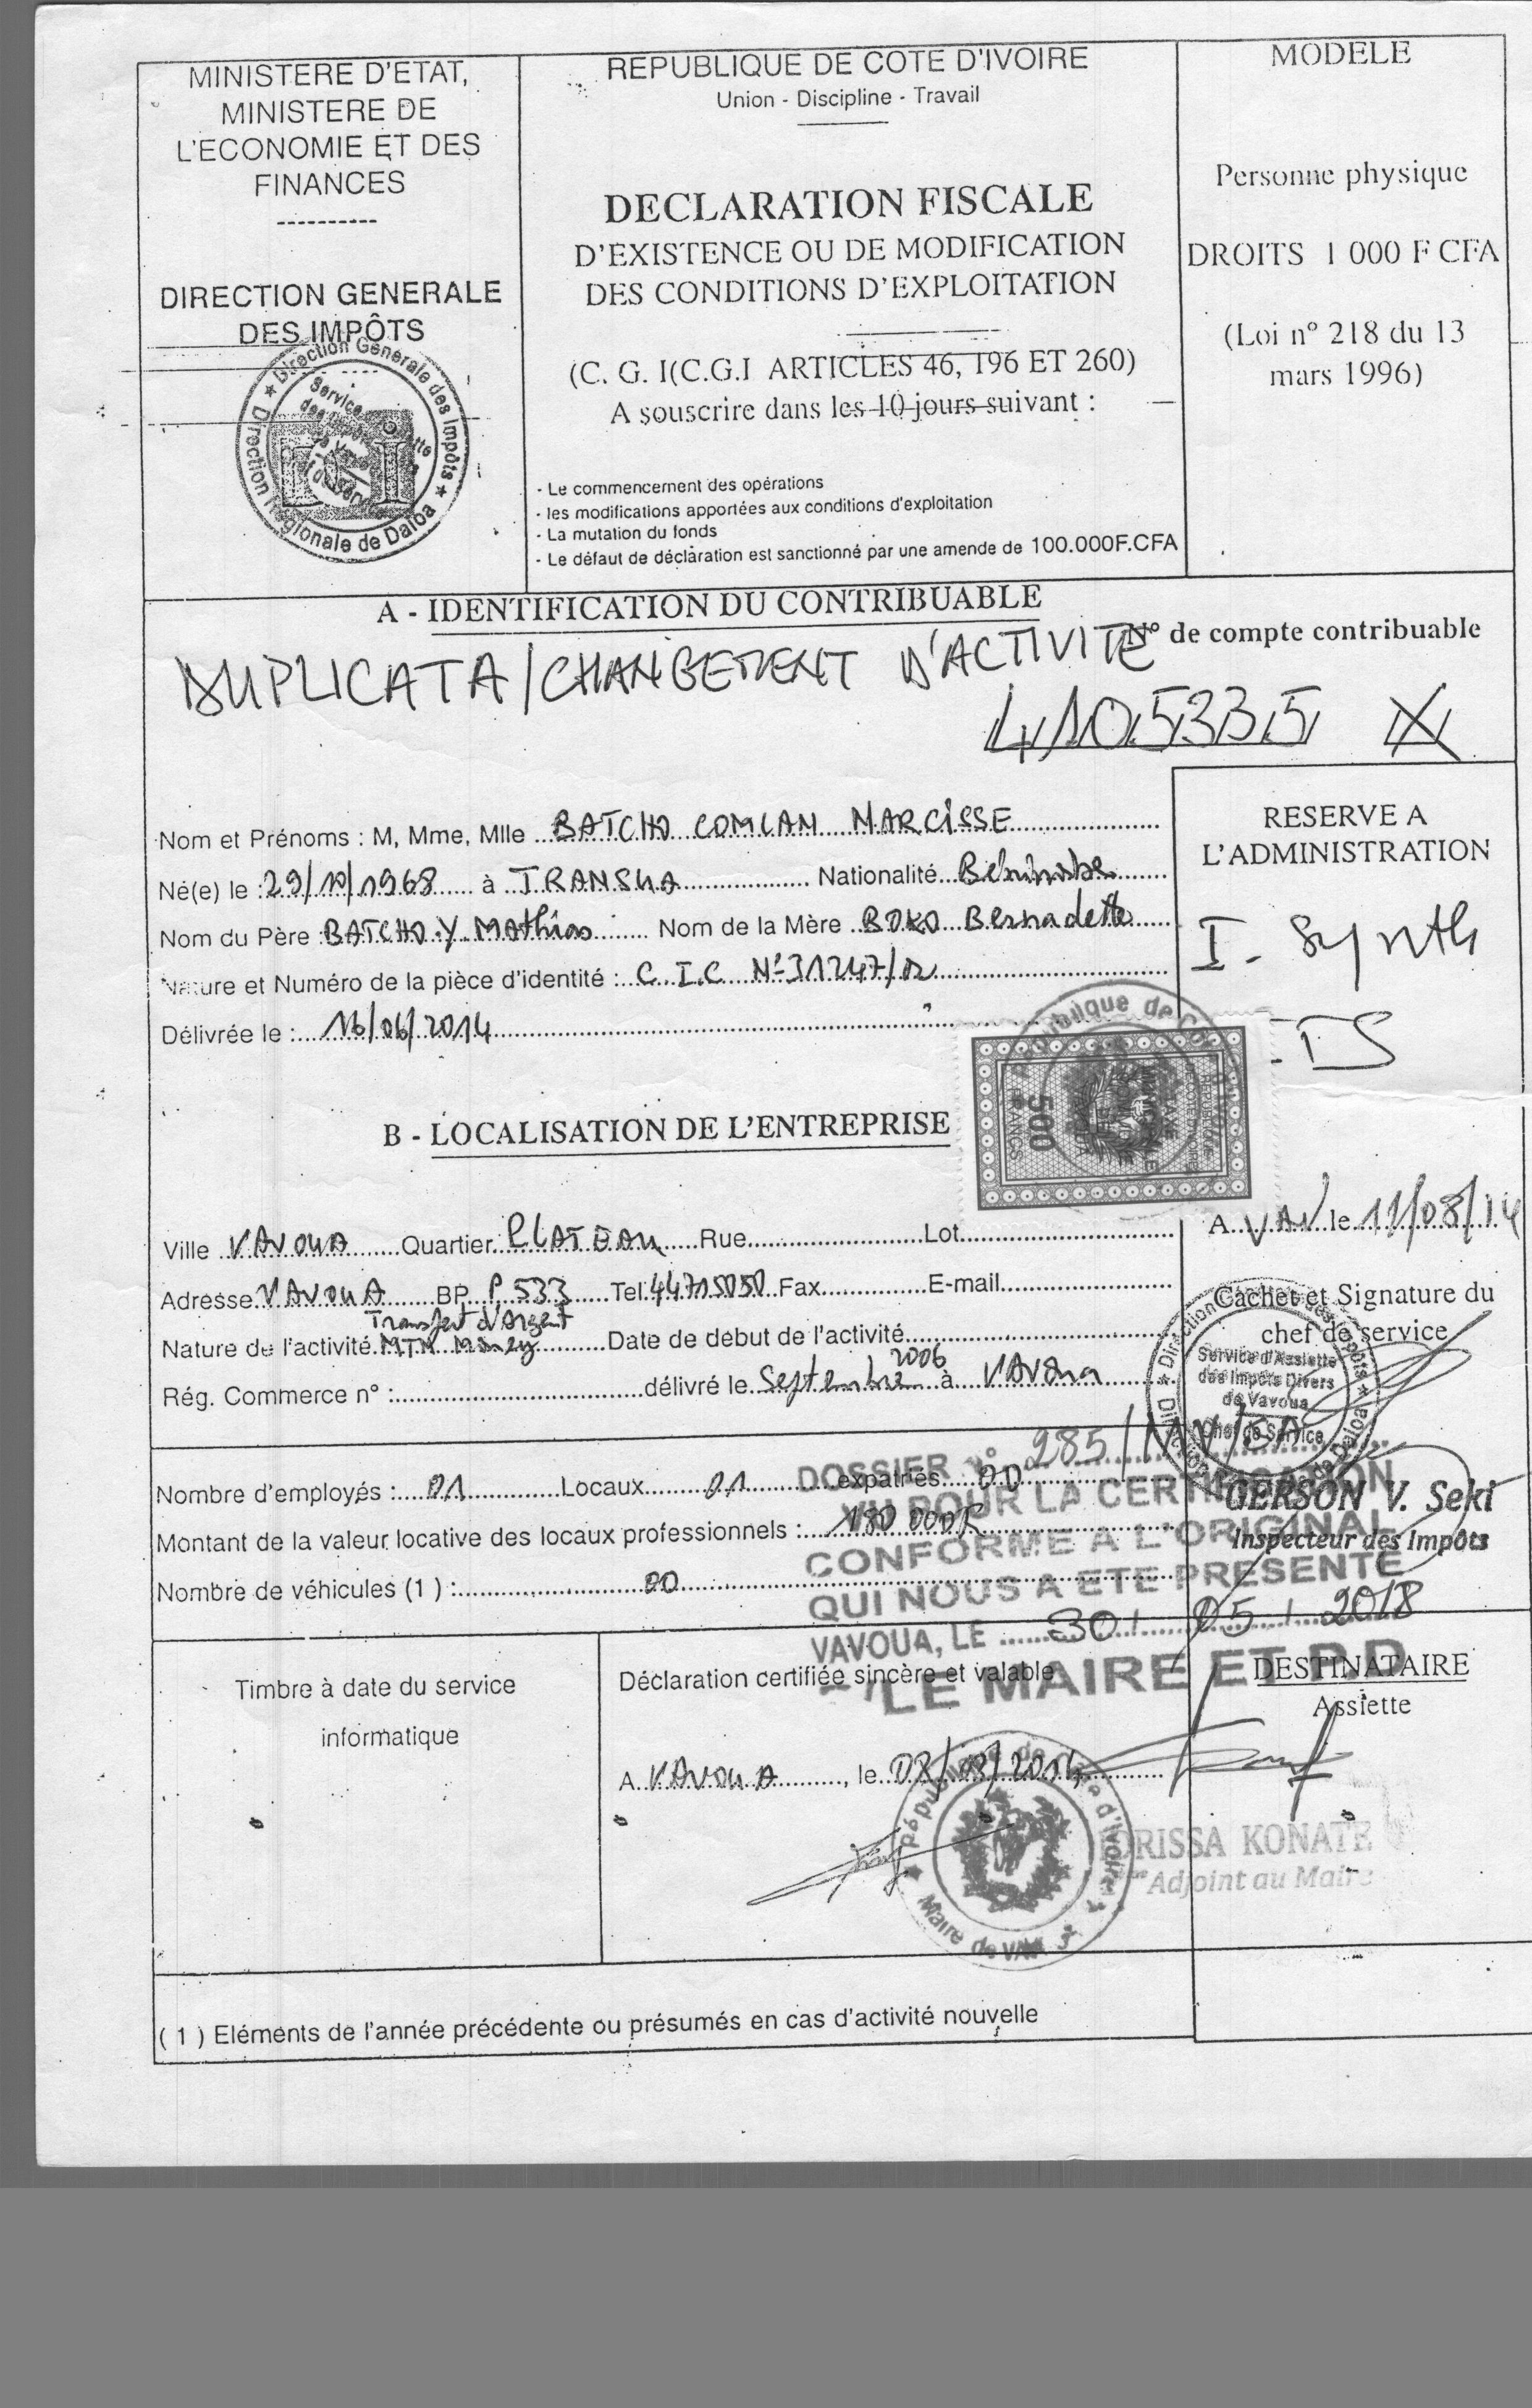 MINISTERE D'ETAT,
MINISTERE DE
L'ECONOMIE ET DES
FINANCES
----------
DIRECTION GENERALE
DES IMPÔTS
Direction Générale des Impôts
Direction Régionale de Daloa
REPUBLIQUE DE COTE D'IVOIRE
Union - Discipline - Travail
DECLARATION FISCALE
D'EXISTENCE OU DE MODIFICATION
DES CONDITIONS D'EXPLOITATION
(C. G. I(C.G.I ARTICLES 46, 196 ET 260)
A souscrire dans les 10 jours suivant :
- Le commencement des opérations
- les modifications apportées aux conditions d'exploitation
- La mutation du fonds
- Le défaut de déclaration est sanctionné par une amende de 100.000F.CFA
MODELE
Personne physique
DROITS 1 000 F CFA
(Loi n° 218 du 13
mars 1996)
A - IDENTIFICATION DU CONTRIBUABLE
DUPLICATA/CHANGEMENT D'ACTIVITE
N° de compte contribuable
4105335 X
Nom et Prénoms : M, Mme, Mlle BATCHO COMLAN NARCISSE
Né(e) le : 29/10/1968 à Nationalité Béninoise
Nom du Père : BATCHO Y Mathias Nom de la Mère BOKO Bernadette
Nature et Numéro de la pièce d'identité : C.I.C N° 31247/02
Délivrée le : 16/06/2014
RESERVE A
L'ADMINISTRATION
I. Synth
500
FRANCS
B - LOCALISATION DE L'ENTREPRISE
Ville VAVOUA Quartier PLATEAU Rue Lot
Adresse VAVOUA BP P 533 Tel 44715050 Fax E-mail
Transfert d'Argent
Nature de l'activité MTN Money Date de début de l'activité
Rég. Commerce n° : délivré le Septembre 2006 à VAVOUA
A VAV le 11/08/14
Cachet et Signature du
chef de service
Service d'Assiette
des Impôts Divers
de Vavoua
Chef de Service
GERSON V. Seki
Inspecteur des Impôts
Nombre d'employés : 01 Locaux 01 expatriés 00
Montant de la valeur locative des locaux professionnels : 180 000F
Nombre de véhicules (1 ) : 00
DOSSIER N° 285/MV/EA
VU POUR LA CERTIFICATION
CONFORME A L'ORIGINAL
QUI NOUS A ETE PRESENTE
VAVOUA, LE 30 / 05 / 2018
LE MAIRE ET P.D
Timbre à date du service
informatique
Déclaration certifiée sincère et valable
A VAVOUA, le 08/08/2014
République de Côte d'Ivoire
Maire de
DESTINATAIRE
Assiette
DRISSA KONATE
Adjoint au Maire
( 1 ) Eléments de l'année précédente ou présumés en cas d'activité nouvelle